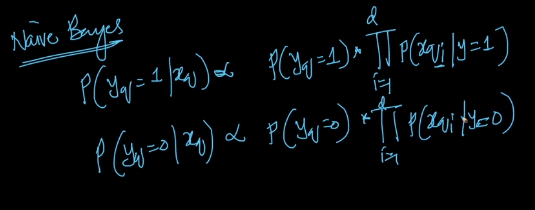 Naive Bayes
P(y_q=1|x_q) ∝ P(y_q=1) * ∏_{i=1}^{d} P(x_{qi}|y=1)
P(y_q=0|x_q) ∝ P(y_q=0) * ∏_{i=1}^{d} P(x_{qi}|y=0)